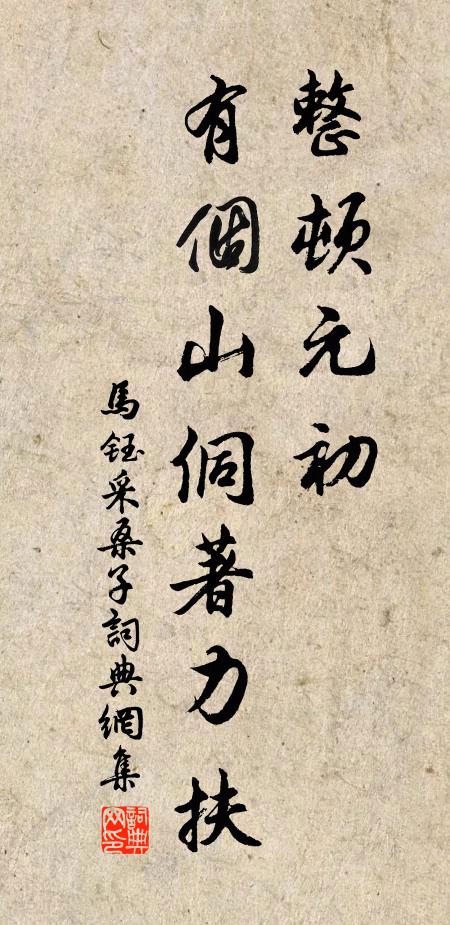 整頓元初
有個山侗著力扶
馬鈺采桑子詞典網集
詞典網印